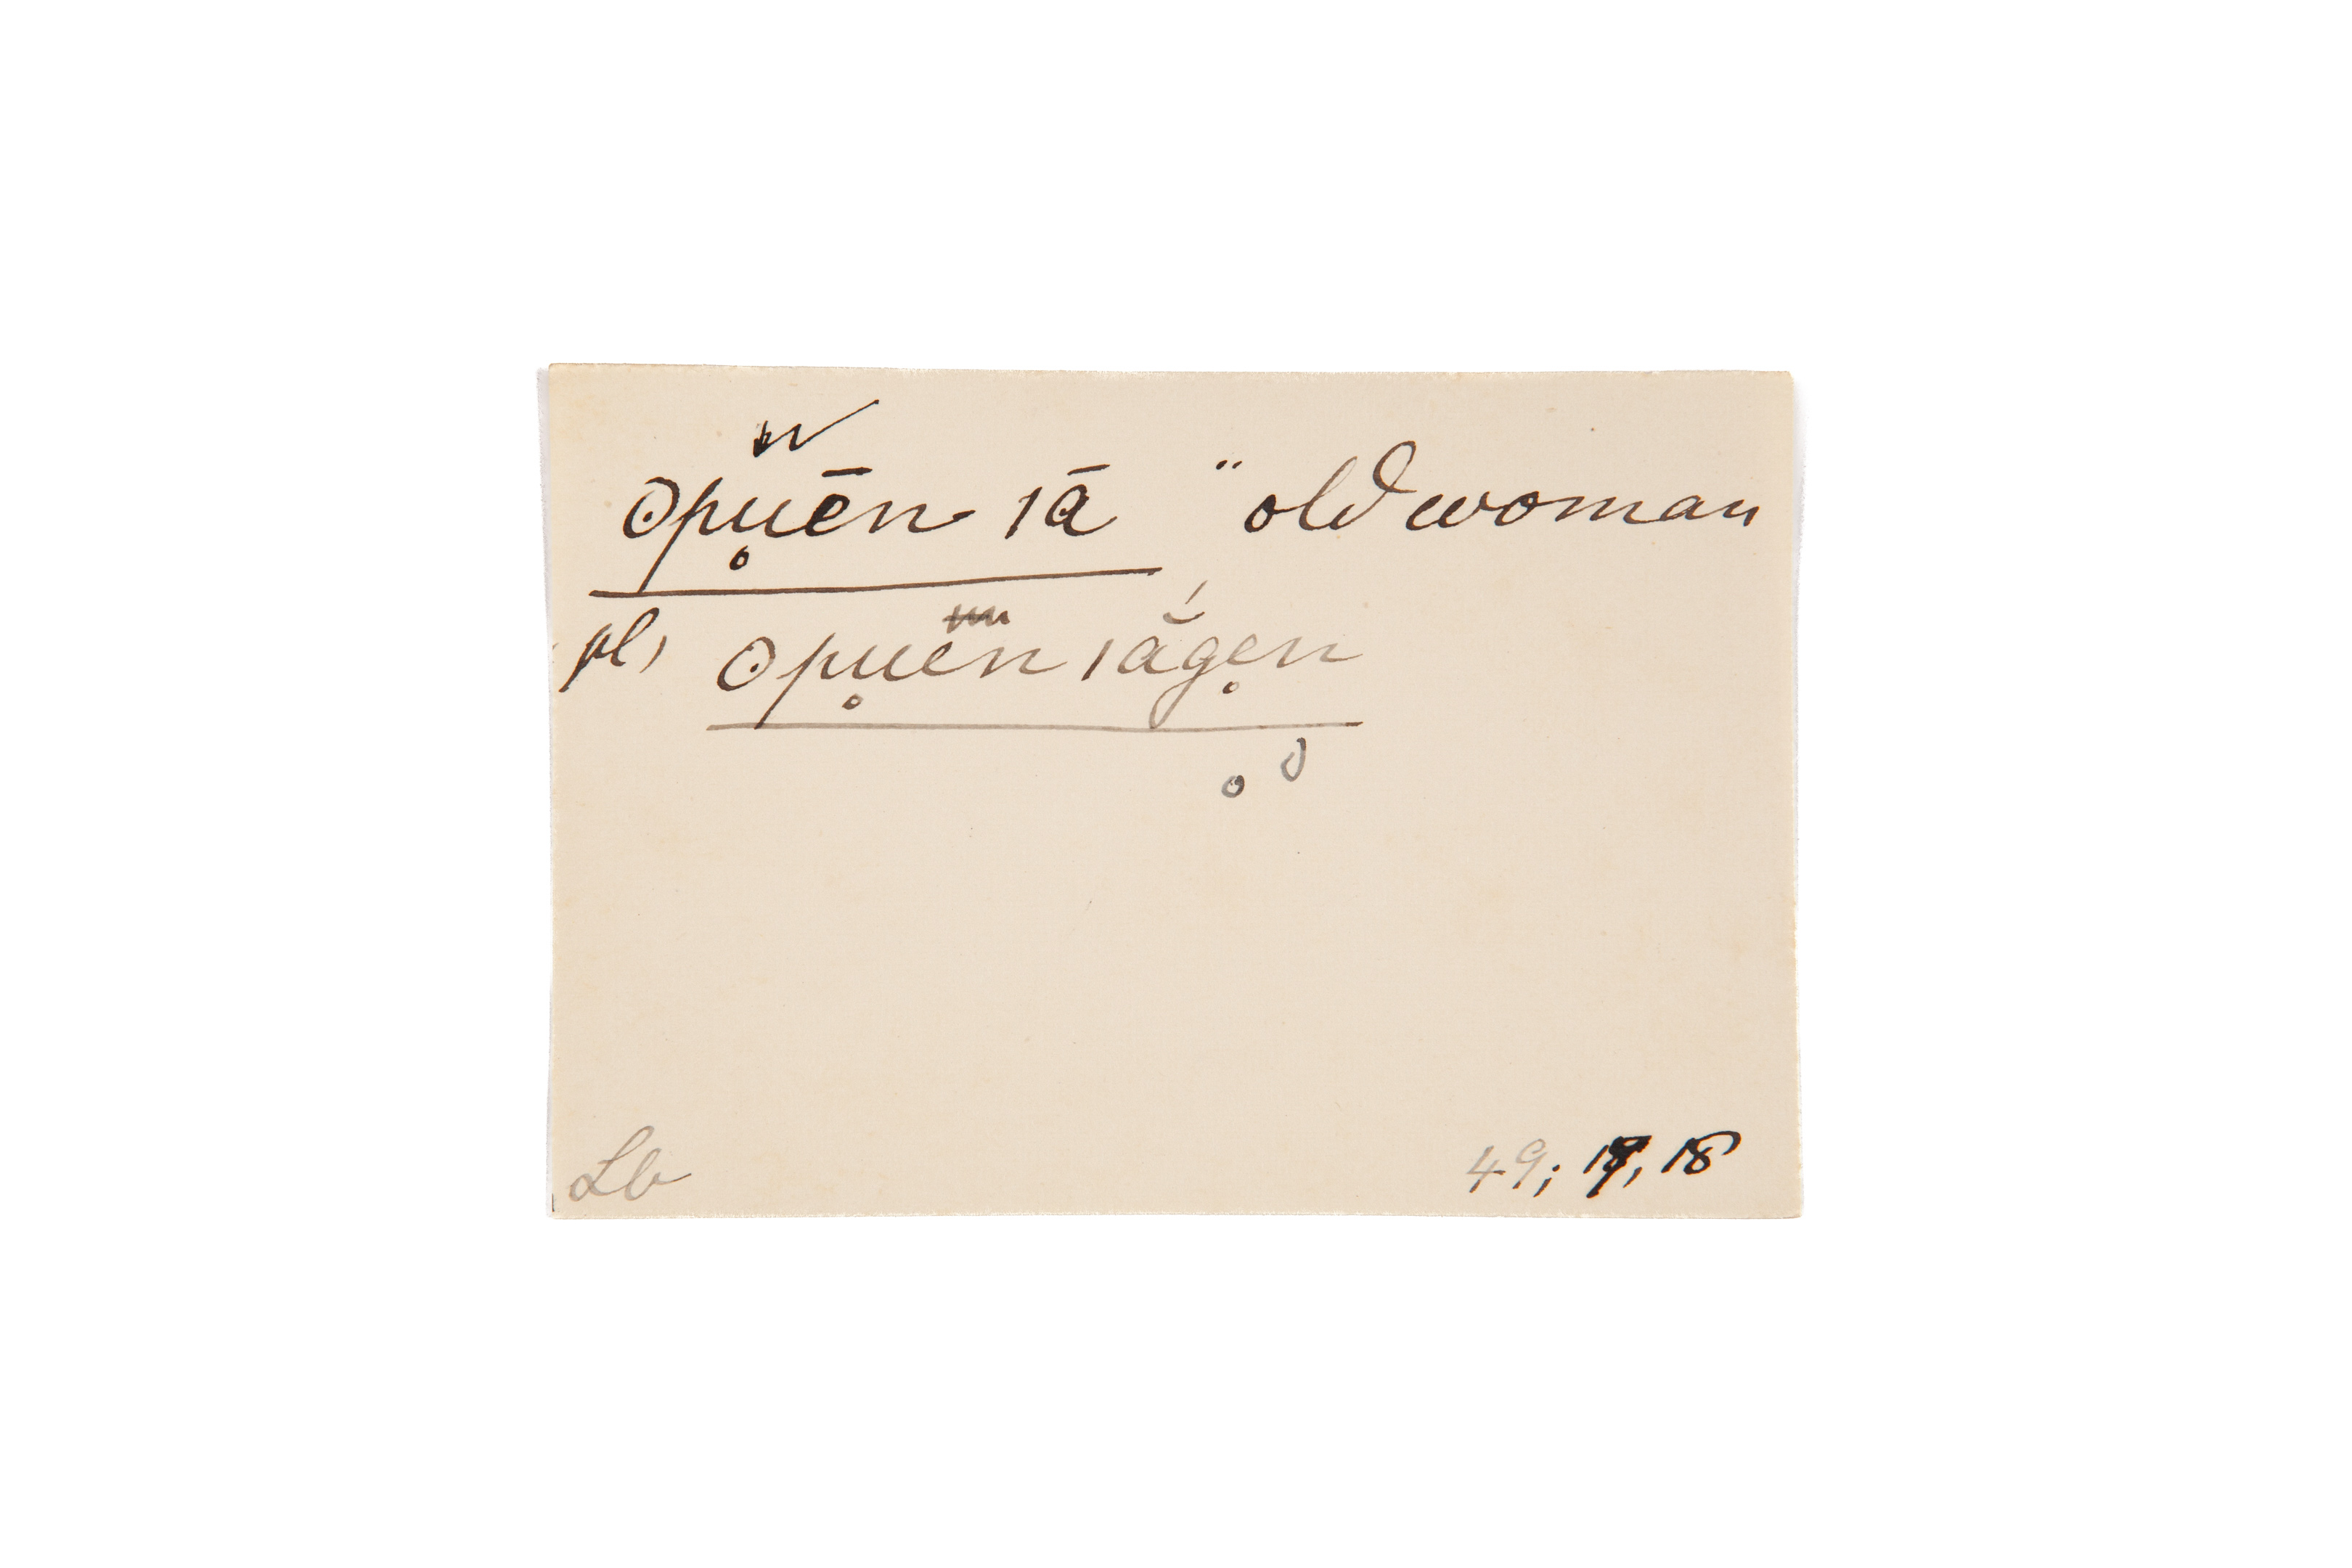 w
opu̥ēn ıā " old woman
pl, opu̥en ıā̆́ge̥n
Lb 49; 17, 18